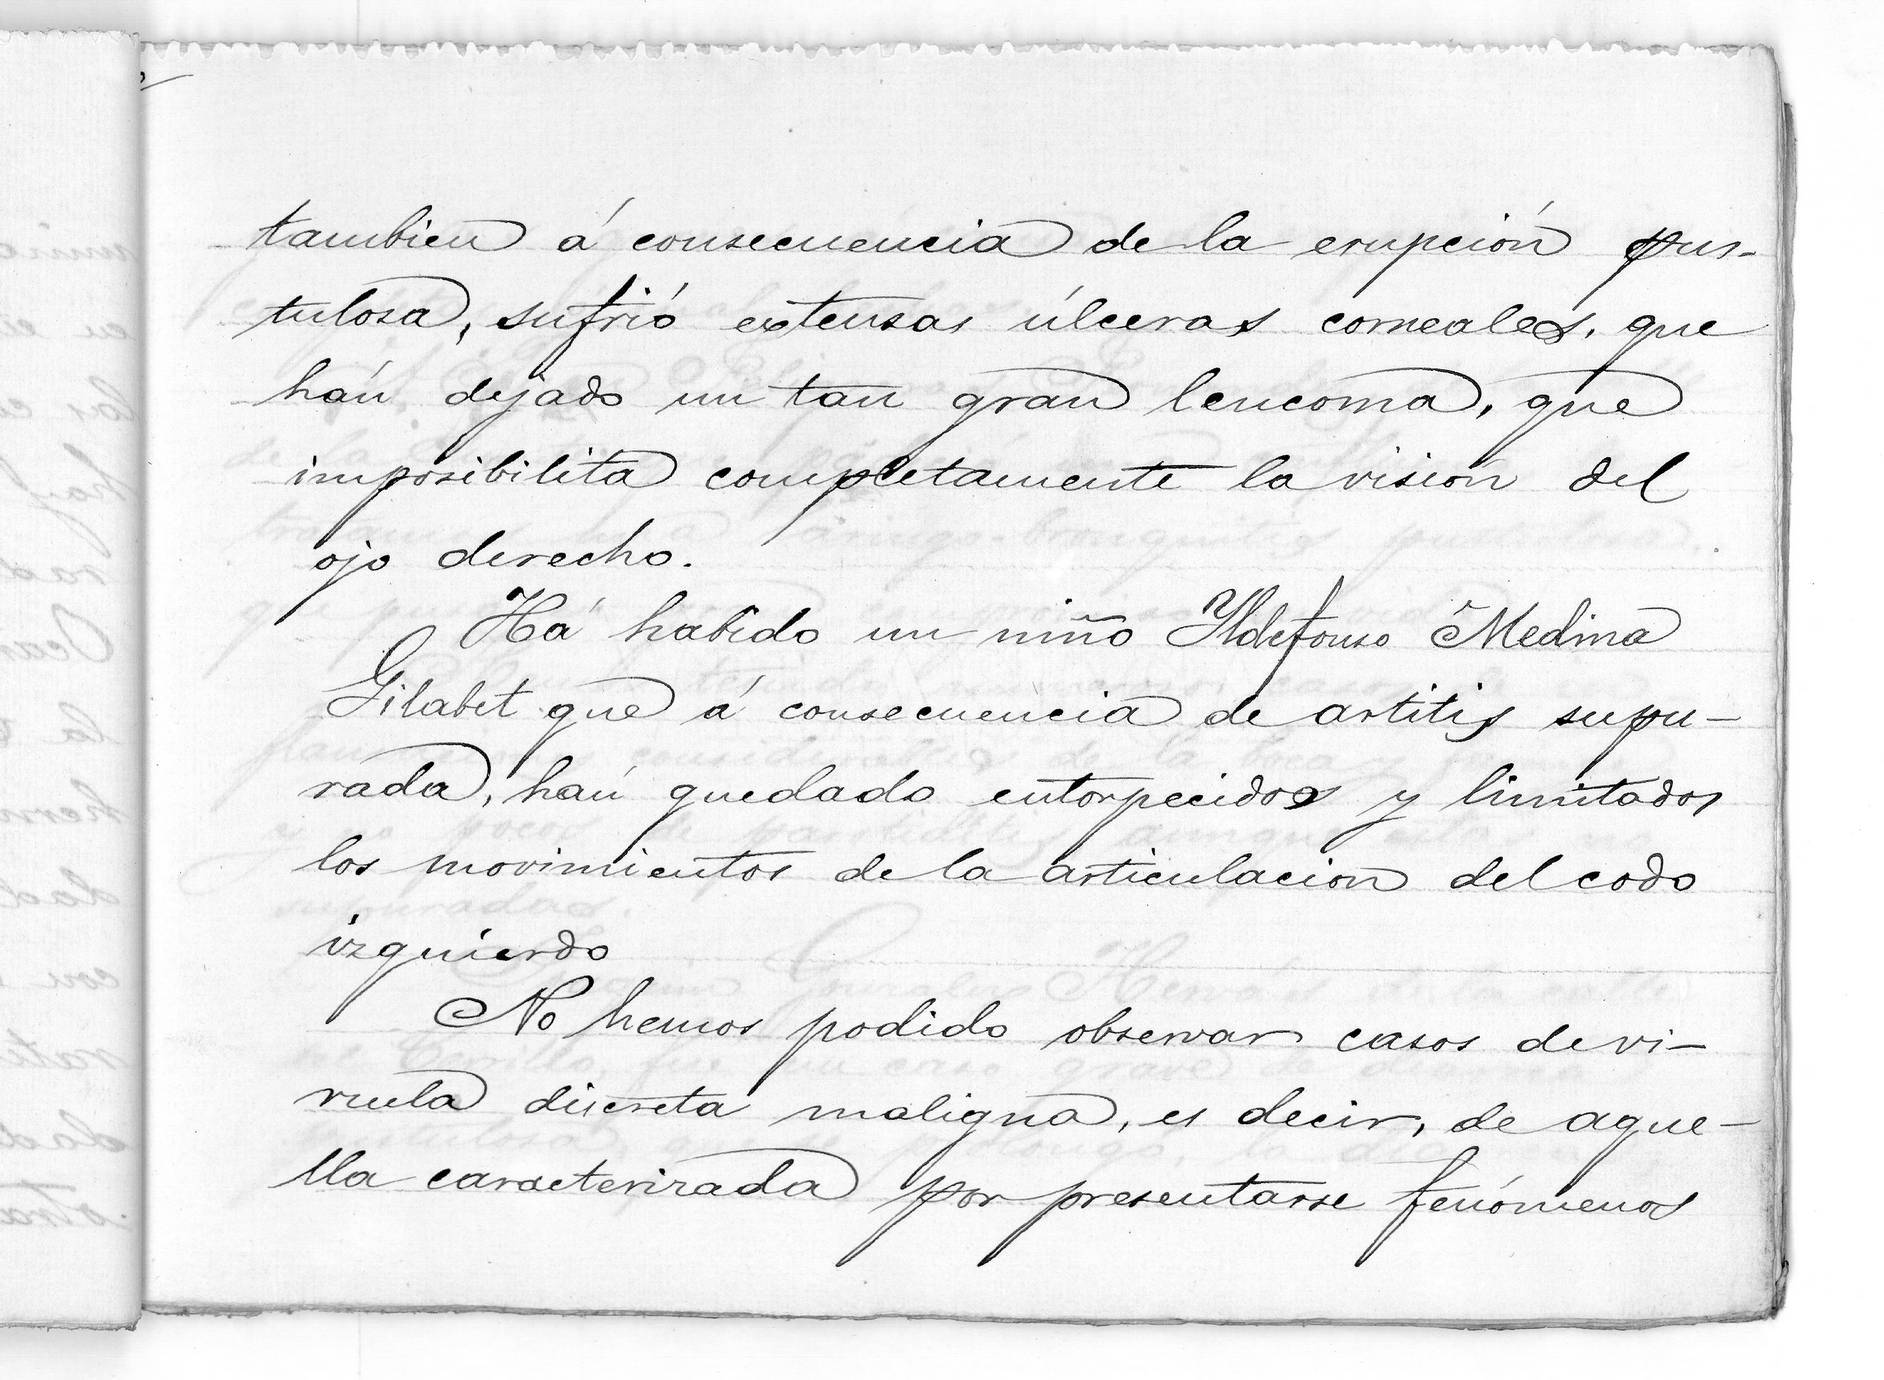 tambien á consecuencia de la erupción pus-
tulosa, sufrió extensas úlceras corneales, que
hán dejado un tan gran leucoma, que
imposibilita completámente la visión del
ojo derecho.
Há habido un niño Yldefonso Medina
Gilabet que á consecuencia de artitis supu-
rada, hán quedado entorpecidos y limitados
los movimientos de la articulacion del codo
izquierdo
No hemos podido observar casos de vi-
ruela discreta maligna, es decir, de aque-
lla caracterizada por presentarse fenómenos